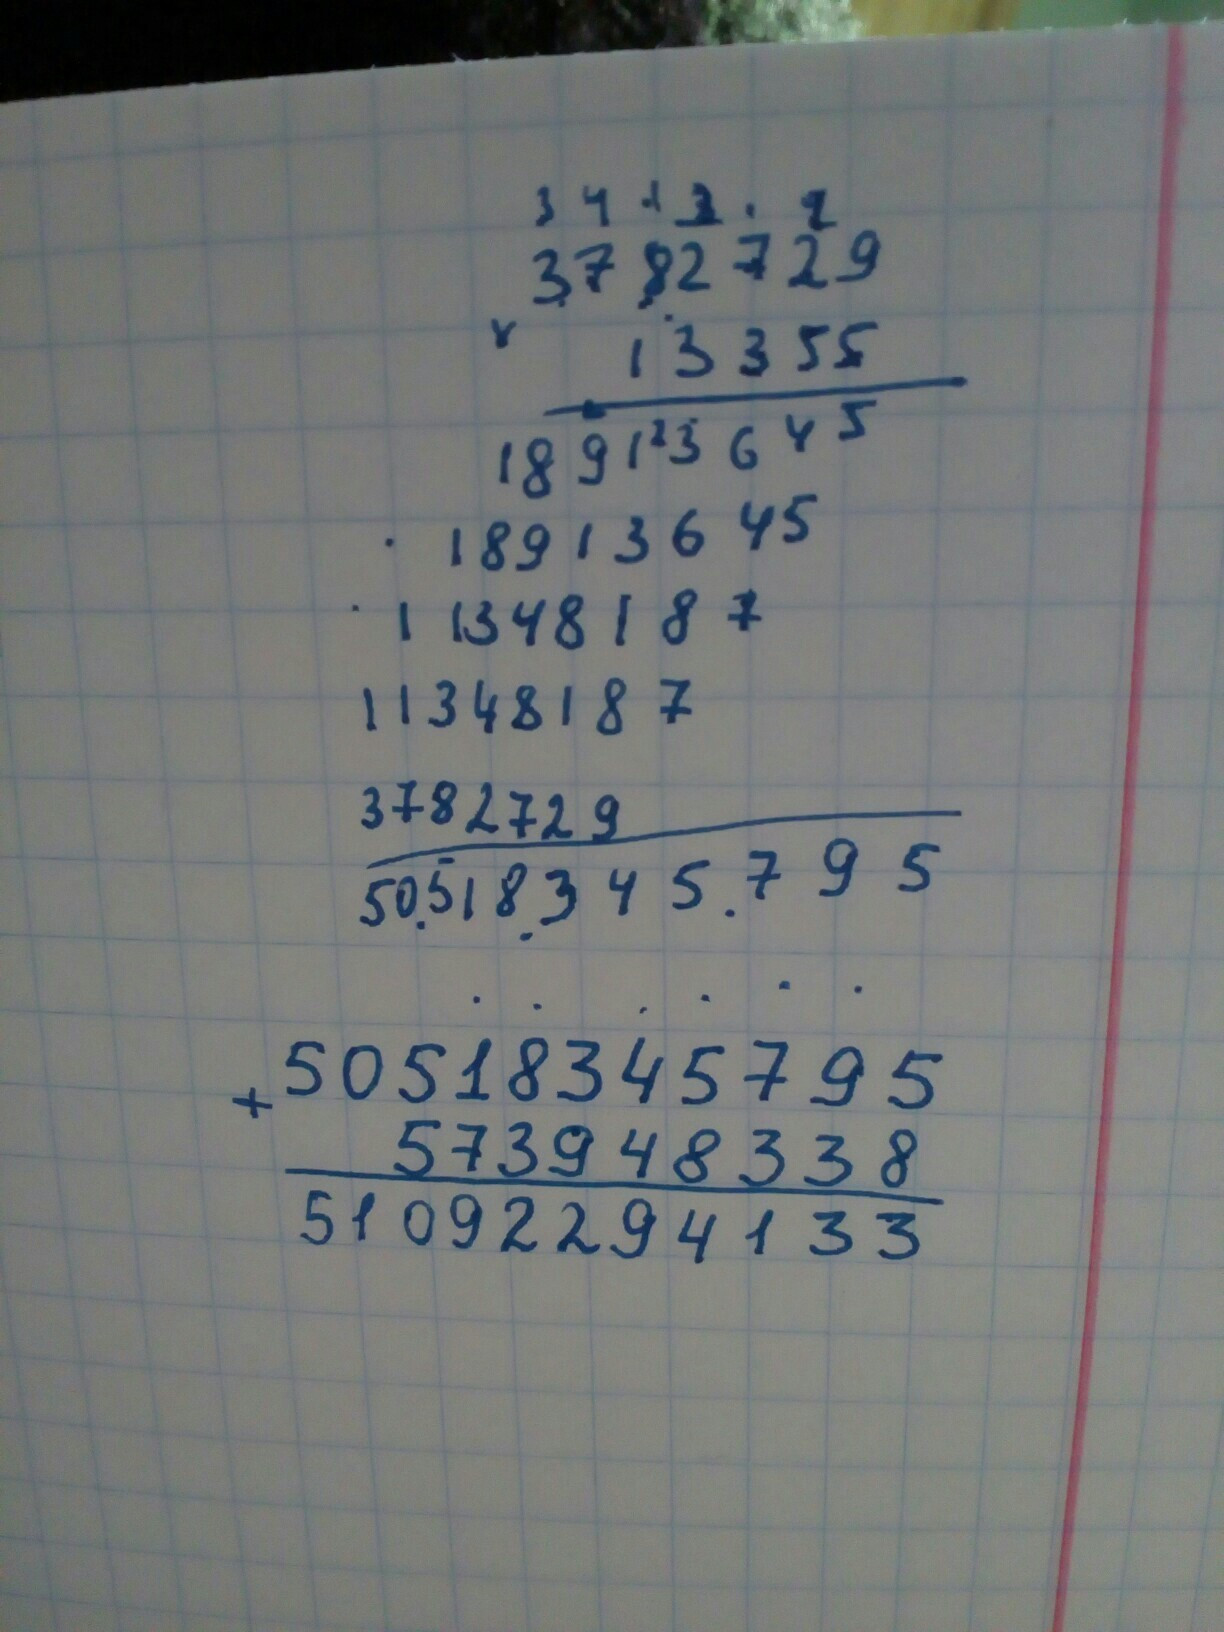 3 4 1 3 . 2
3782729
x 13355
18913645
18913645
11348187
11348187
3782729
50518345795
50518345795
+ 573948338
51092294133